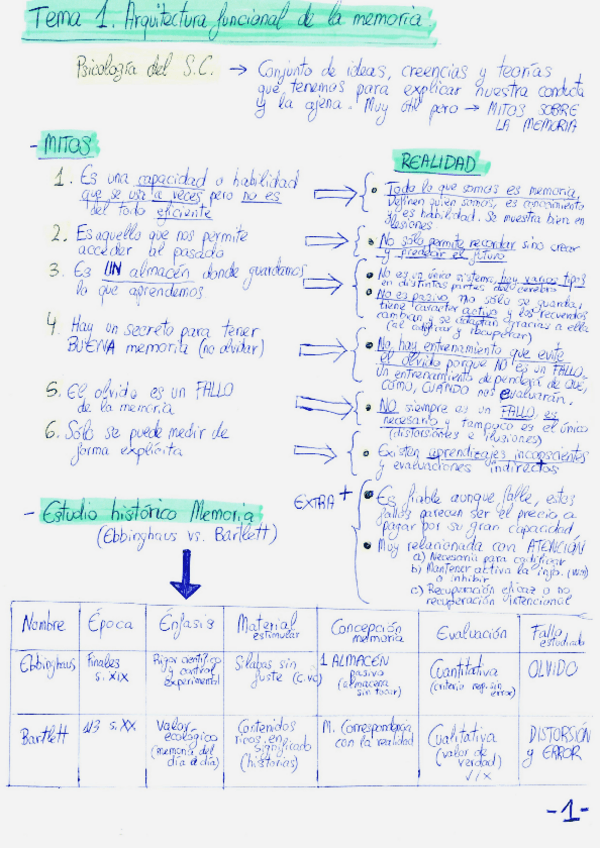 Tema 1. Arquitectura funcional de la memoria.
Psicología del S.C. → Conjunto de ideas, creencias y teorías
que tenemos para explicar nuestra conducta
y la ajena. Muy útil pero → MITOS SOBRE
LA MEMORIA
- MITOS
1. Es una capacidad o habilidad
que se usa a veces pero no es
del todo eficiente
2. Es aquello que nos permite
acceder al pasado
3. Es UN almacén donde guardamos
lo que aprendemos
4. Hay un secreto para tener
BUENA memoria (no olvidar)
5. El olvido es un FALLO
de la memoria
6. Sólo se puede medir de
forma explícita
REALIDAD
• Todo lo que somos es memoria,
definen quien somos, es conocimiento
y es habilidad. Se muestra bien en
lesiones.
• No sólo permite recordar sino crear
y predecir el futuro
• No es un único sistema, hay varios tipos
en distintas partes del cerebro
• No es pasivo, no sólo se guarda,
tiene carácter activo y los recuerdos
cambian y se adaptan gracias a ella
(al codificar y recuperar)
• No hay entrenamiento que evite
el olvido porque NO es un FALLO.
un entrenamiento dependerá de QUÉ,
CÓMO, CUÁNDO nos evaluarán.
• NO siempre es un FALLO, es
necesario y tampoco es el único
(distorsiones e ilusiones)
• Existen aprendizajes inconscientes
y evaluaciones indirectas
EXTRA +
• Es fiable aunque falle, estos
fallos parecen ser el precio a
pagar por su gran capacidad
• Muy relacionada con ATENCIÓN
a) Necesaria para codificar
b) Mantener activa la info. (WM)
o inhibir
c) Recuperación eficaz o no
recuperación intencional
- Estudio histórico Memoria
(Ebbinghaus vs. Bartlett)
Nombre | Época | Énfasis | Material estimular | Concepción memoria | Evaluación | Fallo estudiado
Ebbinghaus | Finales s. XIX | Rigor científico y control experimental | Sílabas sin (C.VC) | 1 ALMACÉN pasivo (almacena sin tocar) | Cuantitativa (criterio rep. sin error) | OLVIDO
Bartlett | 1/3 s. XX | Valor ecológico (memoria del día a día) | Contenidos ricos en significado (historias) | M. Correspondencia con la realidad | Cualitativa (valor de verdad) √/x | DISTORSIÓN y ERROR
-1-